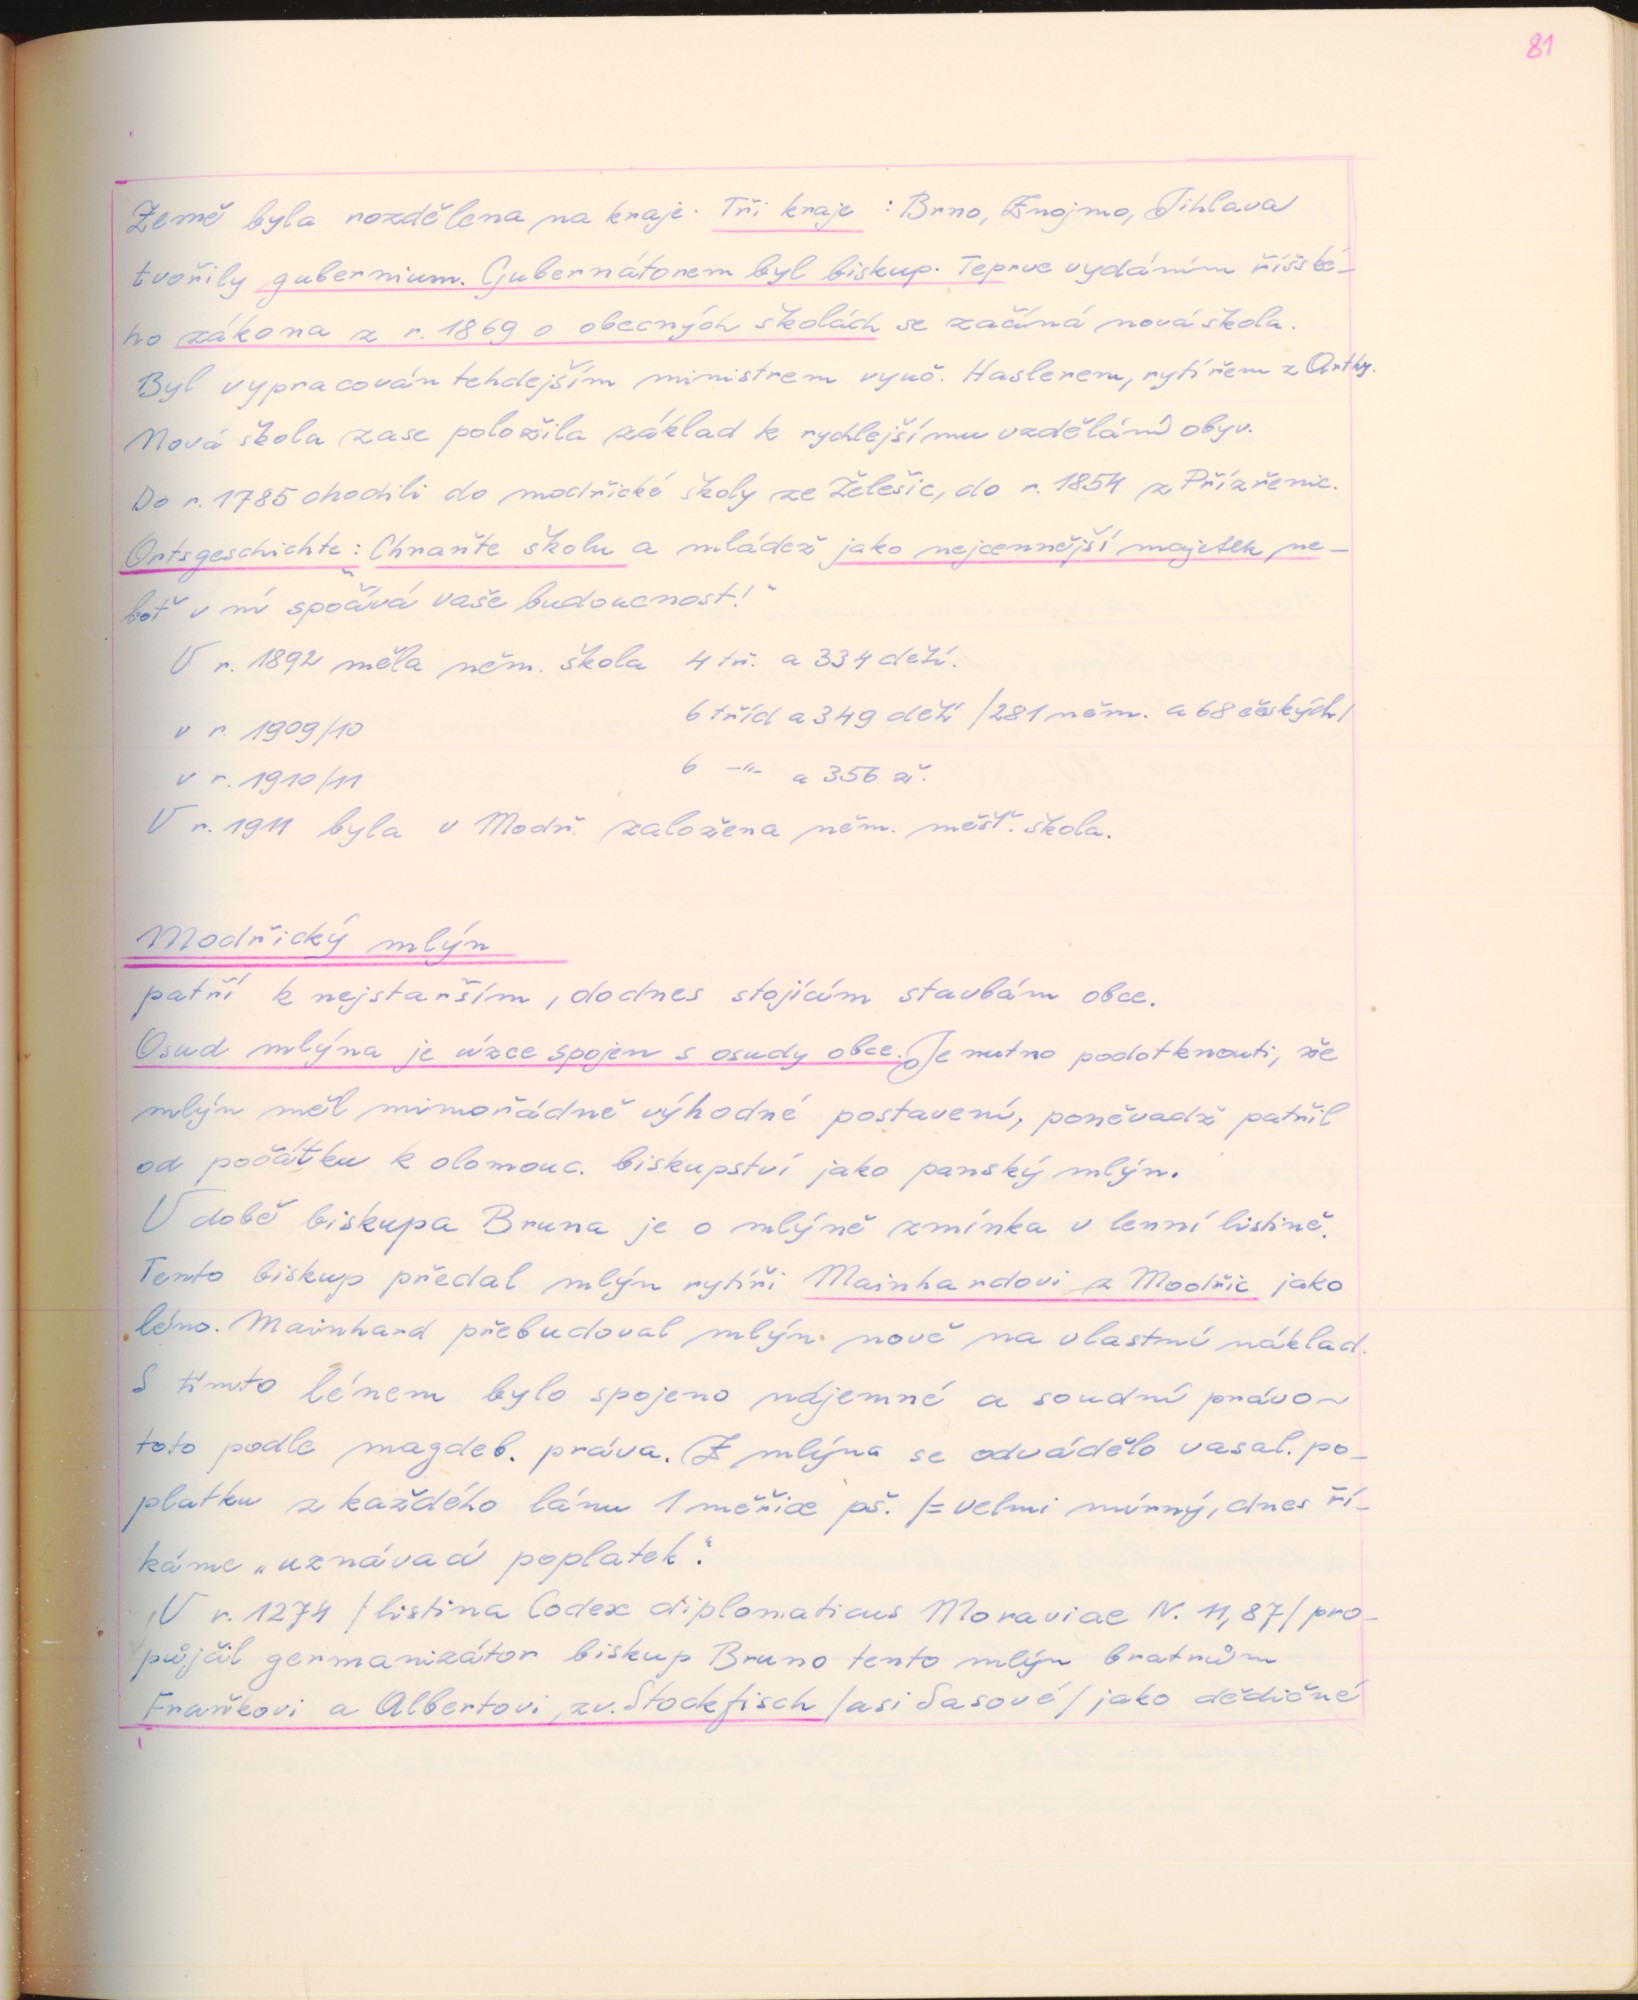 81
Země byla rozdělena na kraje. Tři kraje : Brno, Znojmo, Jihlava
tvořily gubernium. Gubernátorem byl biskup. Teprve vydáním říšské-
ho zákona z r. 1869 o obecných školách se začíná nová škola.
Byl vypracován tehdejším ministrem vyuč. Haslerem, rytířem z Arthy.
Nová škola zase položila základ k rychlejšímu vzdělání obyv.
Do r. 1785 chodili do modřické školy ze Želešic, do r. 1854 z Přízřenic.
Ortsgeschichte: Chraňte školu a mládež jako nejcennější majetek, ne-
boť v ní spočívá vaše budoucnost!"
V r. 1892 měla něm. škola 4 tř. a 334 dětí.
v r. 1909/10 6 tříd a 349 dětí /281 něm. a 68 českých/
v r. 1910/11 6 -"- a 356 ž.
V r. 1911 byla v Modř. založena něm. měšť. škola.
Modřický mlýn
patří k nejstarším, dodnes stojícím stavbám obce.
Osud mlýna je úzce spojen s osudy obce. Je nutno podotknouti, že
mlýn měl mimořádně výhodné postavení, poněvadž patřil
od počátku k olomouc. biskupství jako panský mlýn.
V době biskupa Bruna je o mlýně zmínka v lenní listině.
Tento biskup předal mlýn rytíři Mainhardovi z Modřic jako
léno. Mainhard přebudoval mlýn nově na vlastní náklad.
S tímto lénem bylo spojeno nájemné a soudní právo-
toto podle magdeb. práva. Z mlýna se odvádělo vasal. po-
platku z každého lánu 1 měřice pš. /= velmi mírný, dnes ří-
káme „uznávací poplatek".
V r. 1274 /listina Codex diplomaticus Moraviae N. 11, 87/ pro-
půjčil germanizátor biskup Bruno tento mlýn bratrům
Fraňkovi a Albertovi, zv. Stockfisch /asi Sasové/ jako dědičné